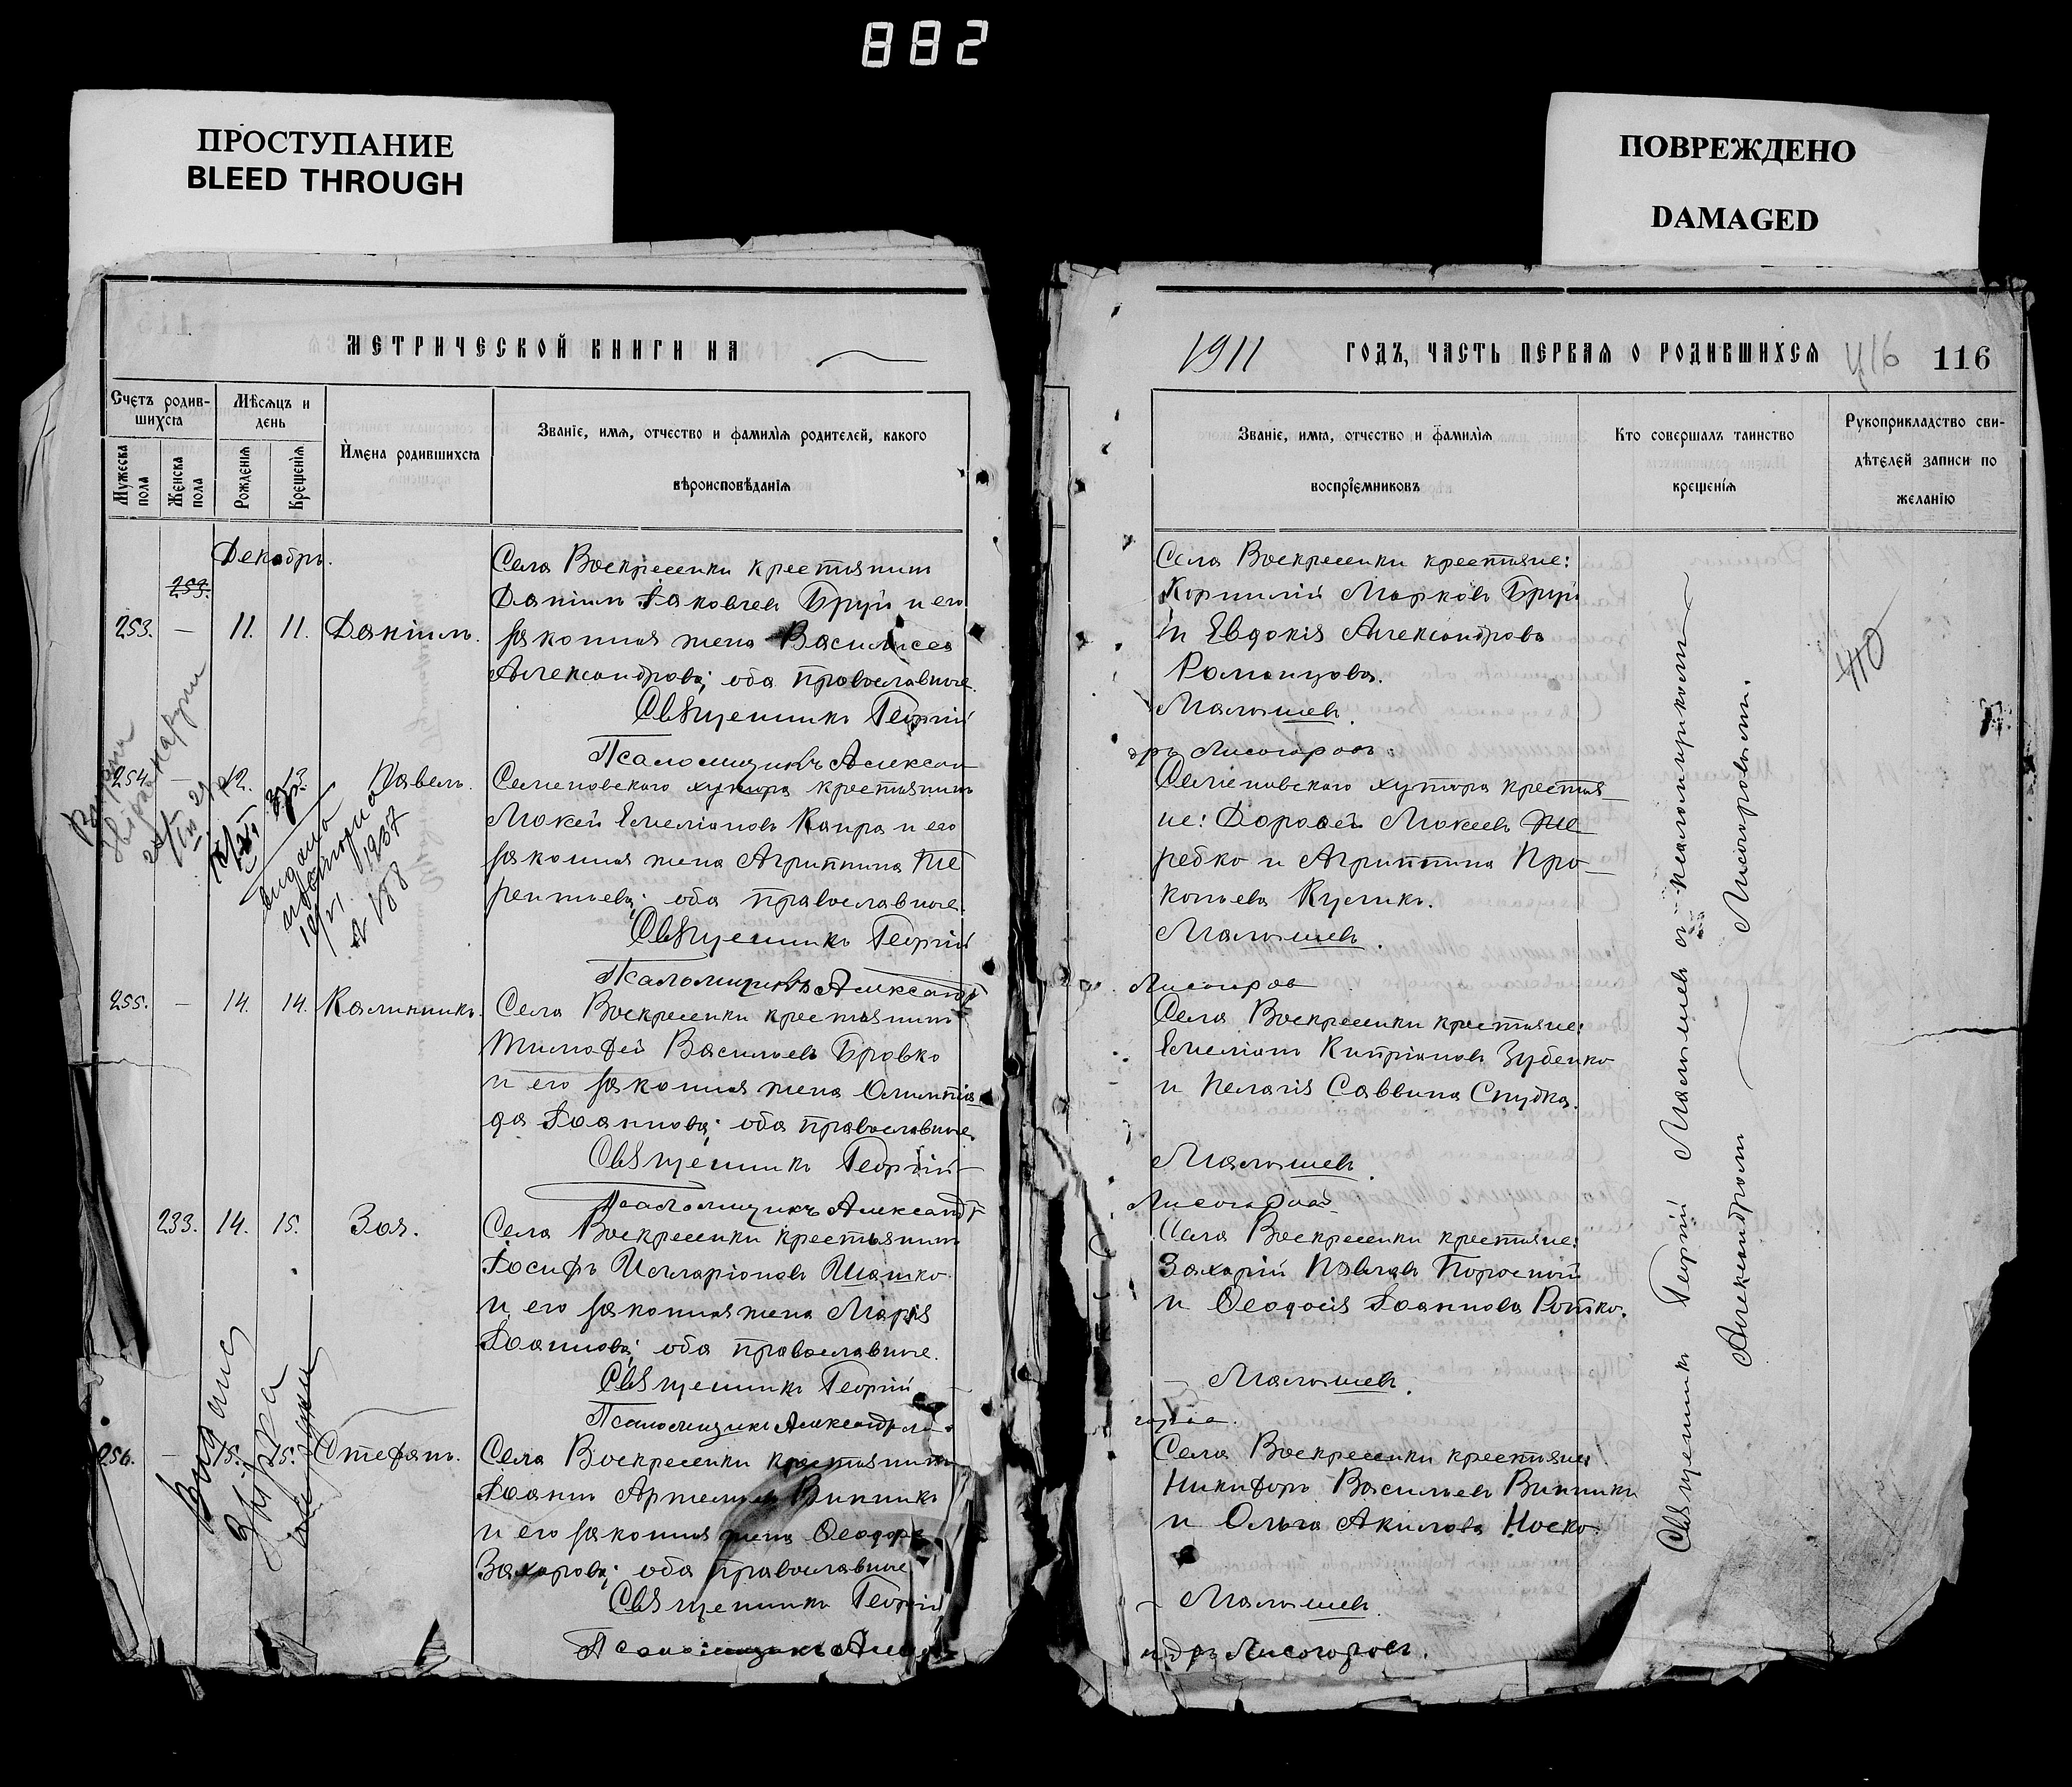 882
ПРОСТУПАНИЕ
BLEED THROUGH
ПОВРЕЖДЕНО
DAMAGED
МЕТРИЧЕСКОЙ КНИГИ НА
Счетъ родив-
шихся
Мѣсяцъ и
день
Имена родившихся
Званіе, имя, отчество и фамилія родителей, какого
вѣроисповѣданія
Мужеска
пола
Женска
пола
Рожденія
Крещенія
Декабрь.
253.
253. — 11. 11. Даніилъ.
Села Воскресенки крестьянинъ
Даніилъ Іаковлевъ Бруй и его
законная жена Василиса
Александрова; оба православные.
Священникъ Георгій
Псаломщикъ Алексан
254. — 12. 13. Павелъ.
Семеновскаго хутора крестьянинъ
Мокей Емеліановъ Каира и его
законная жена Агриппина Те
рентьева; оба православные.
Священникъ Георгій
Псаломщикъ Александр
1937
255. — 14. 14. Калинникъ.
Села Воскресенки крестьянинъ
Тимофей Васильевъ Бровко
и его законная жена Олимпіа
да Іоаннова; оба православные.
Священникъ Георгій
Псаломщикъ Александр
233. 14. 15. Зоя.
Села Воскресенки крестьянинъ
Іосифъ Илларіоновъ Шашко
и его законная жена Марія
Іоаннова; оба православные.
Священникъ Георгій
Псаломщикъ Александръ
256. — 15. 15. Стефанъ.
Села Воскресенки крестьянинъ
Іоаннъ Артемьевъ Винникъ
и его законная жена Феодора
Захарова; оба православные
Священникъ Георгій
Псаломщикъ
1911
ГОДЪ, ЧАСТЬ ПЕРВАЯ О РОДИВШИХСЯ
116
116
Званіе, имя, отчество и фамилія
воспріемниковъ
Кто совершалъ таинство
крещенія
Рукоприкладство сви-
дѣтелей записи по
желанію
Села Воскресенки крестьяне:
Корнилій Марковъ Бруй
и Евдокія Александрова
Романцова.
Малышевъ.
дръ Лисогоровъ.
Семеновскаго хутора крестья-
не: Дорофей Мокеевъ Те
ребко и Агриппина Про-
копьева Куликъ.
Малышевъ.
Лисогоров
Села Воскресенки крестьяне:
Емеліанъ Кипріановъ Зубенко
и Пелагія Саввина Слудка.
Малышевъ
Лисогоров
Села Воскресенки крестьяне:
Захарій Павловъ Поросный
и Феодосія Іоаннова Ротко.
Малышевъ.
Села Воскресенки крестьяне:
Никифоръ Васильевъ Винникъ
и Ольга Акилова Носко.
Малышевъ.
ндръ Лисогоровъ.
Священникъ Георгій Малышевъ съ псаломщикомъ
Александромъ Лисогоровымъ.